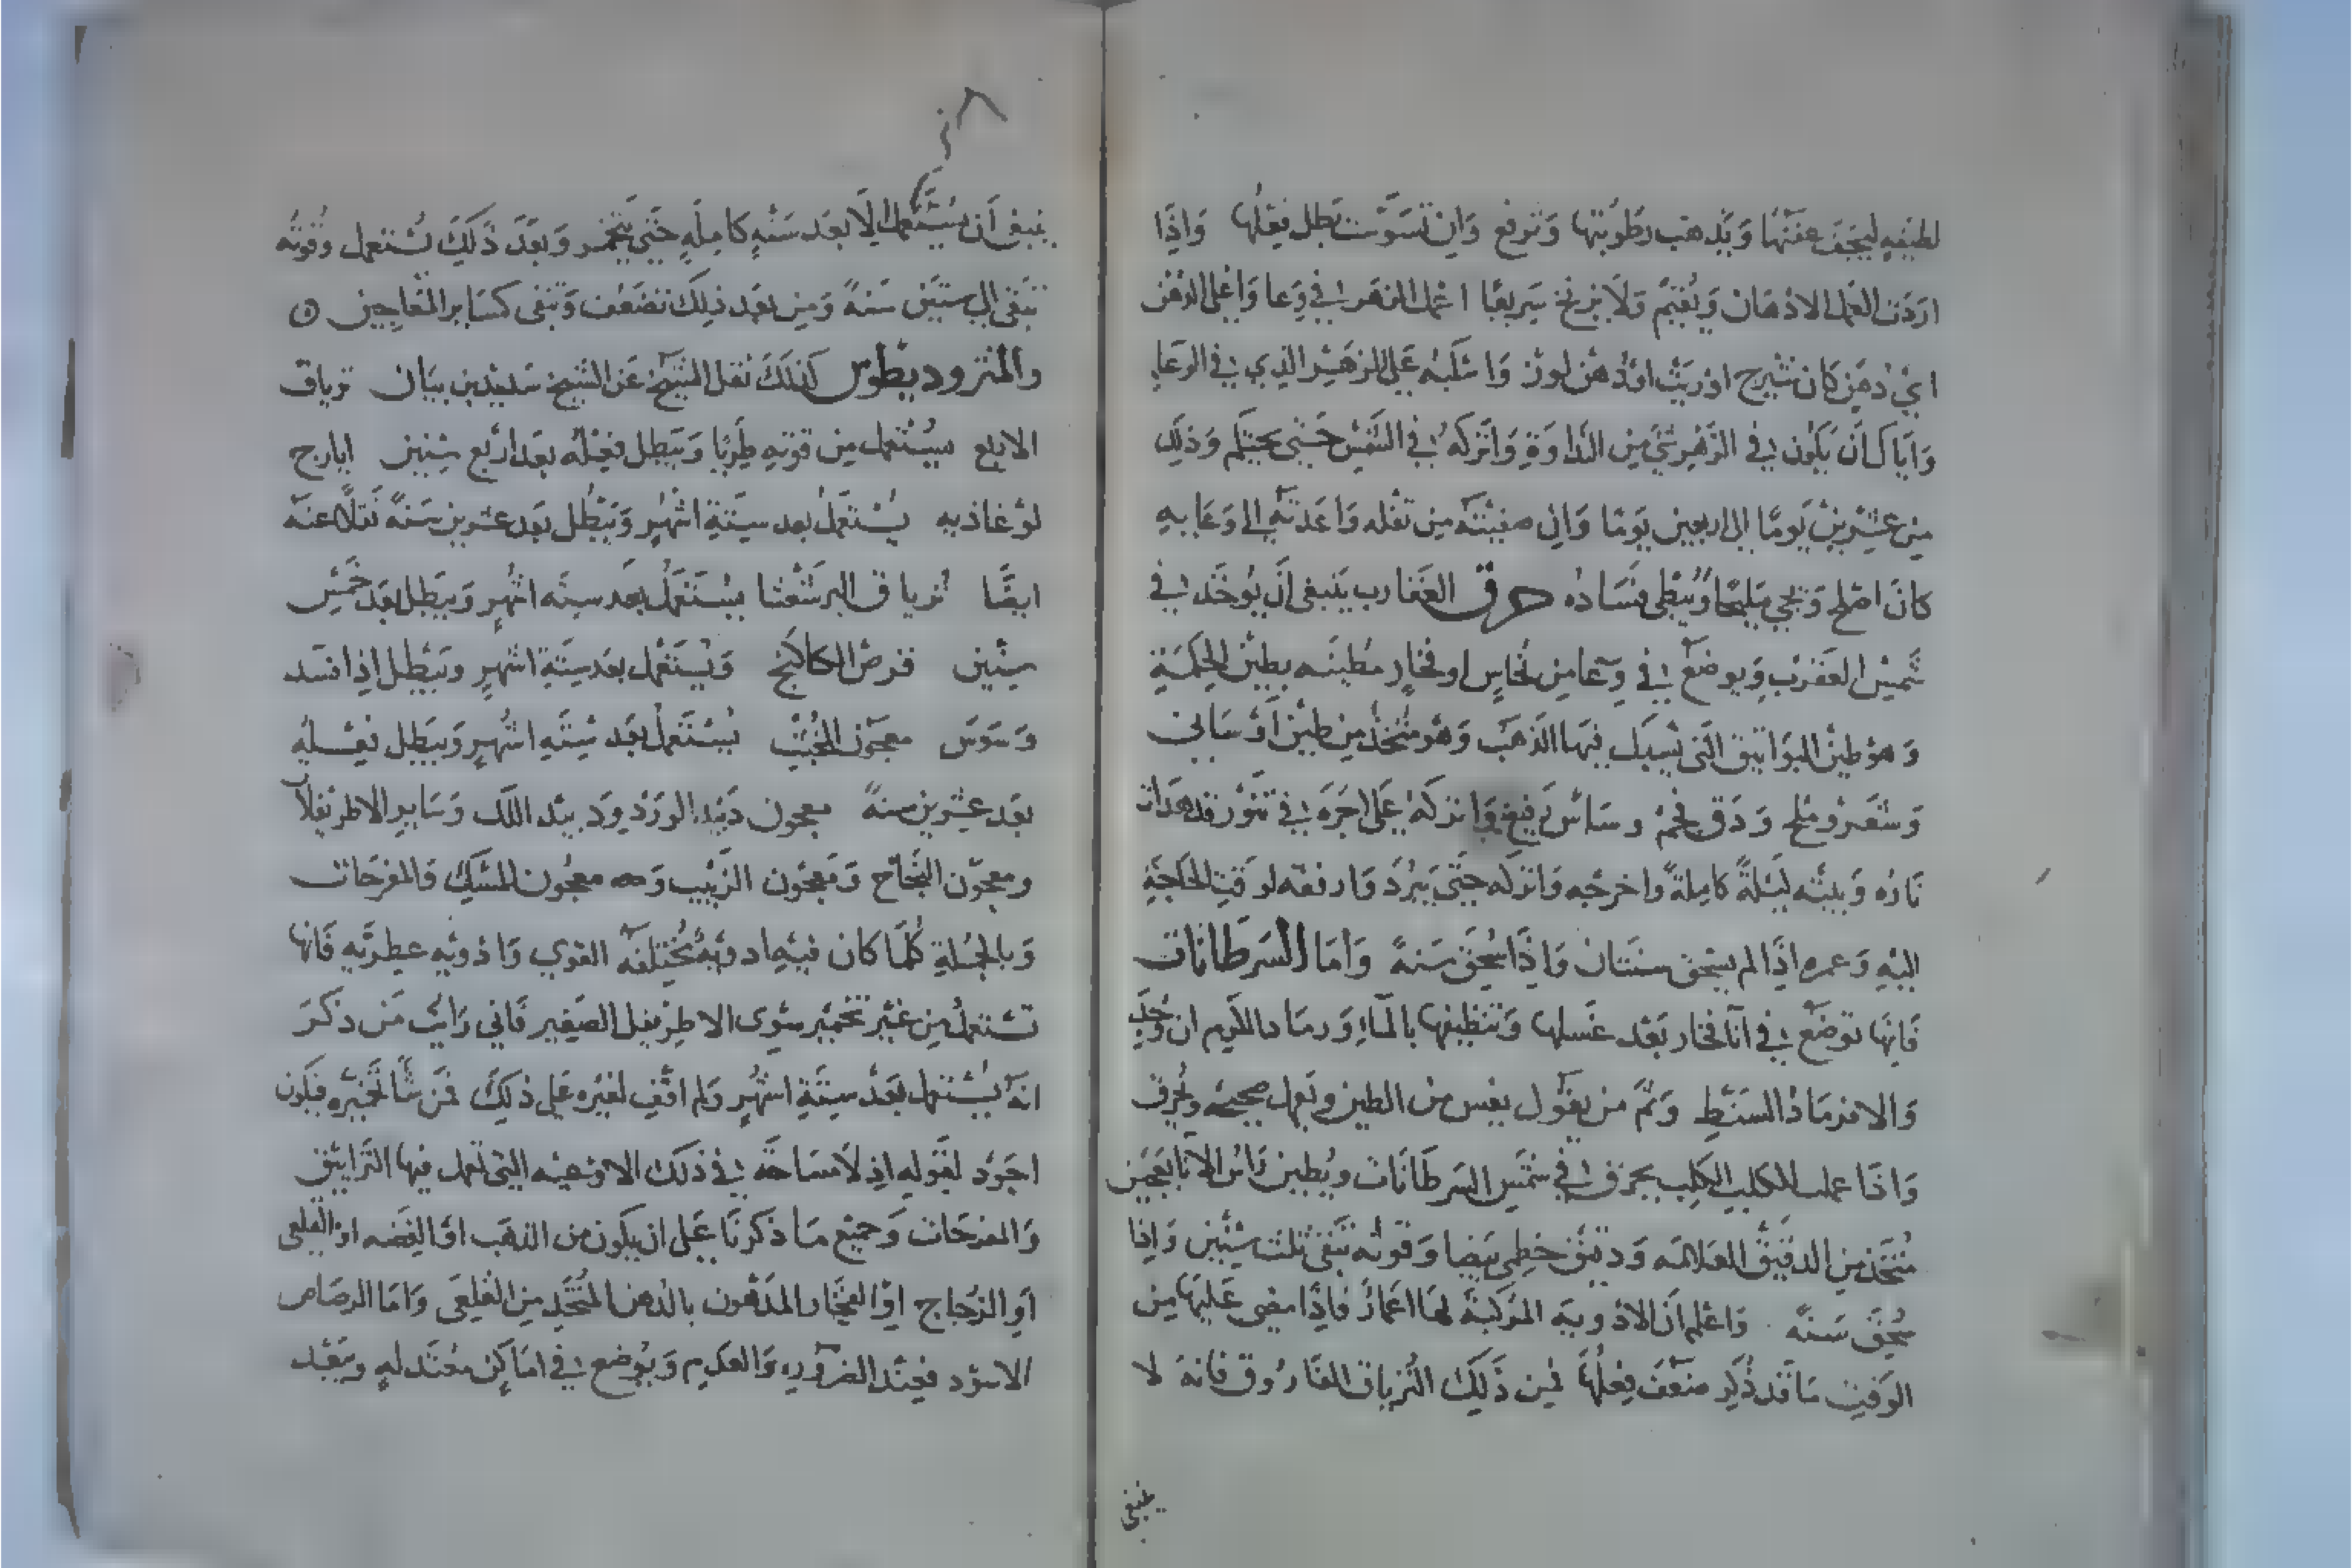 لطيفه ليجف عفنها وتذهب رطوبتها وترفع وان تسوست بطل فعلها واذا
اردت العمل الادهان ويقيم ولا يزنخ سريعا اعمل الزهر في وعا واغلي الدهن
اي دهن كان شيرج او زيت او دهن لوز واسكبه على الزهر الذي في الوعا
واياك ان يكون في الزهر شي من النداوة واتركه في الشمس حتى يحتكم وذلك
من عشرين يوما الى اربعين يوما وان صفيته من تفله واعدته الى وعا به
كان اصلح ويجي مليحا ويبطي فساده حرق العقارب ينبغي ان يوخد في
شمس العقرب ويوضع في وعا من نحاس او فخار مطينه بطين الحكمة
وهو طين البواتيق التي يسبك فيها الذهب وهو متخذ من طين
وشعر وملح ودق فحم وساس واتركه على اجره في تنور قد هدات
ناره وبيته ليلة كاملة واخرجه واتركه حتى يبرد وارفعه لوقت الحاجة
اليه وعمره اذا لم يسحق سنتان واذا سحق سنة واما السرطانات
فانها توضع في انا فخار بعد غسلها وتنظيفها بالماء ورماد الكرم ان وجد
والا فرماد السنط وثم من يقول
واذا عملت للكلب الكلب يحرق في شمس السرطانات ويطين راس الانا بعجين
متخذ من الدقيق العلامه ودقيق خطمي بيضا وقوته تبقى ثلث سنين واذا
سحق سنة واعلم ان الادوية المركبة لها اعمار فاذا مضى عليها من
الوقت ما قد ذكر ضعف فعلها فمن ذلك الترياق الفاروق فانه لا
ينبغي
٨
ينبغي ان يستعمل الا بعد سنة كاملة حتى يتخمر وبعد ذلك تستعمل وقوته
تبقى الى ستين سنة ومن بعد ذلك تضعف وتبقى كساير المعاجين
والمثروديطوس كذلك نقل الشيخ عن الشيخ سديد بن بيان ترياق
الاربع يستعمل من قوته طريا ويبطل فعله بعد اربع سنين ايارج
لوغاذيه يستعمل بعد ستة اشهر ويبطل بعد عشرين سنة نقلا عنه
ايضا ترياق البرشعثا يستعمل بعد سته اشهر ويبطل بعد خمس
سنين قرص الكاكنج ويستعمل بعد ستة اشهر ويبطل اذا فسد
وسوس معجون الخبث يستعمل بعد سته اشهر ويبطل فعله
بعد عشرين سنة معجون دبيد الورد ودبيد اللك وساير الاطريفلات
ومعجون النجاح ومعجون الزبيب ومعجون المسك والمفرحات
وبالجملة كلما كان فيه ادوية مختلفه القوي وادويه عطريه فانها
تستعمل من غير تخمير سوى الاطريفل الصغير فاني رايت من ذكر
انه يستعمل بعد ستة اشهر ولم اقف لغيره على ذلك فمن شا تخميره فيكون
اجود لقوله اذ لا مسامحة في ذلك الاوعيه التي تعمل فيها الترايق
والمفرحات وجميع ما ذكرنا على ان يكون من الذهب او الفضه او القلعي
او الزجاج او الفخار المدهون بالدهن المتخد من القلعي واما الرصاص
الاسود فعند الضروره والعدم ويوضع في اماكن معتدله وبعد